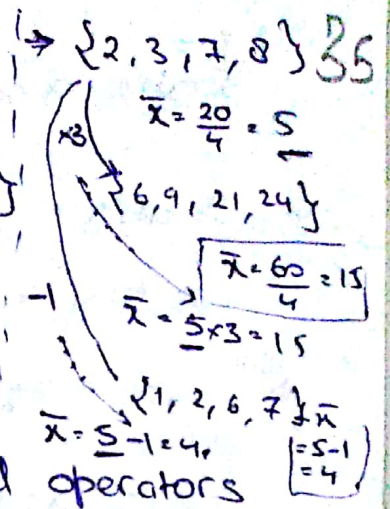 {2, 3, 7, 8} 35
x̄ = 20/4 = 5
×3
{6, 9, 21, 24}
x̄ = 60/4 = 15
-1
x̄ = 5×3 = 15
{1, 2, 6, 7} x̄
= 5-1
= 4
x̄ = 5-1 = 4.
operators